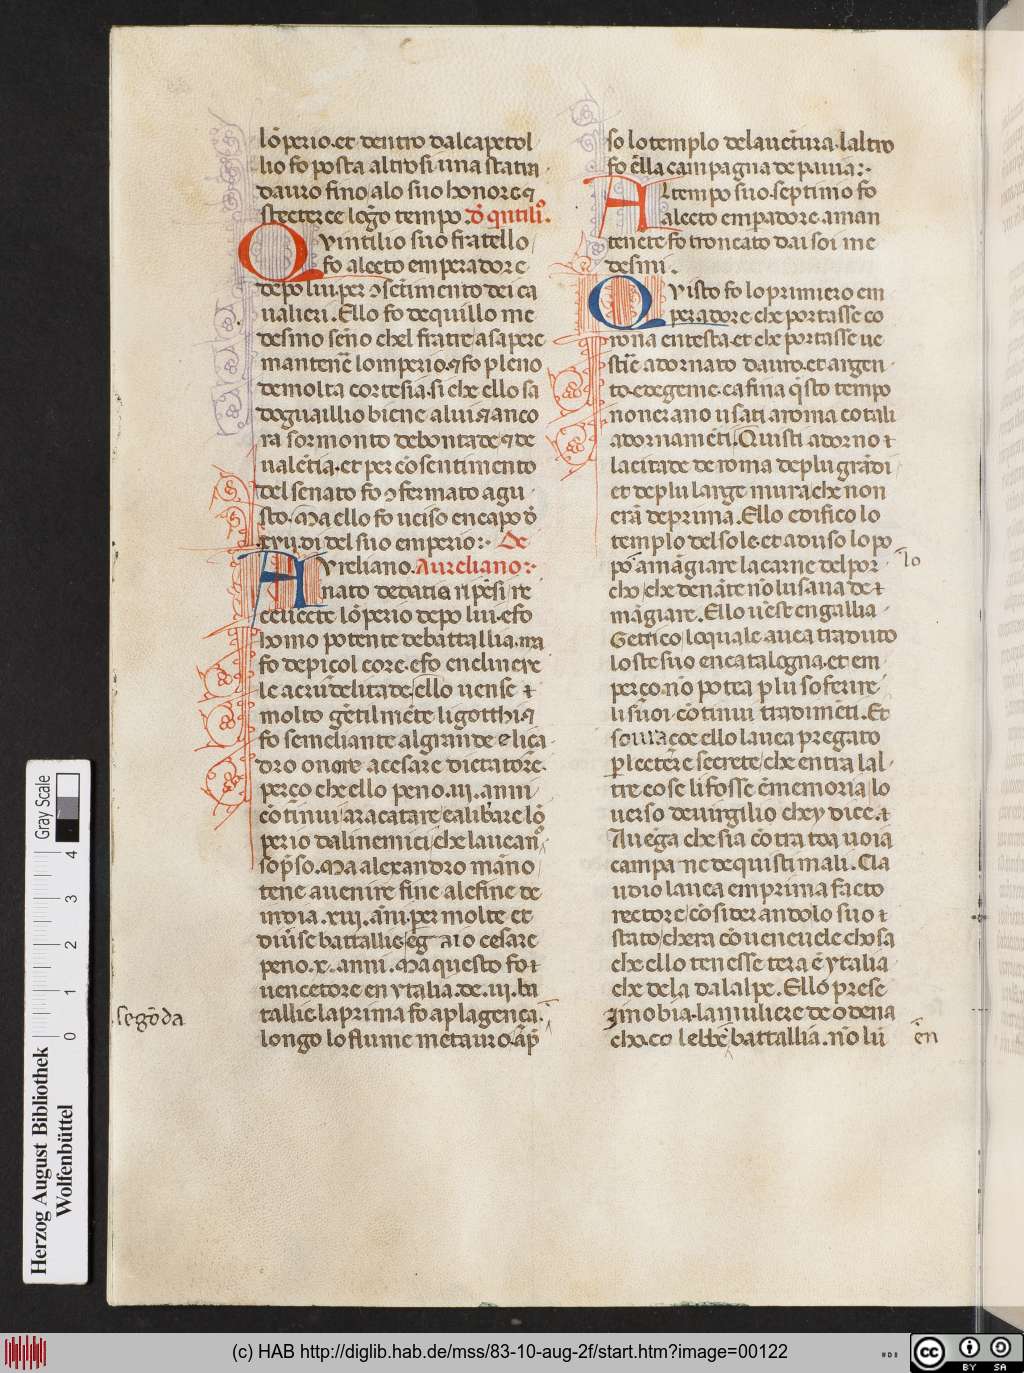 lõperio.et dentro dalcapetol
lio fo posta altrosi una statua
dauro fino alo suo honore ⁊
stectece lõgo tempo. d̄ qntilio.
Qvintilio suo fratello
fo alecto emperadore
depo lui. per ↄsẽtimento dei ca
ualieri. Ello fo dequillo me
desmo seño chel fratre asapere
mantenẽ lomperio. ⁊ fo pleno
demolta cortesia. si che ello sa
doguaillio biene alui ⁊ anco
ra sormonto debontade ⁊ de
ualẽtia. et per cõsentimento
del senato fo ↄfermato agu
sto. Ma ello fo uciso encapo d̄
xvij. di del suo emperio:. De
Avreliano. Aureliano:.
nato dedatia ripẽsi re
ceuecte lõperio depo lui. efo
homo potente debattallia. ma
fo depicol core. efo enclinere
le acrudelitade. ello uense ⁊
molto gẽtilmẽte li gotthi ⁊
fo semeliante algrande elica
dro onore acesare dictatore.
perço che ello peno .iii. anni
cõtinui aracatare ealibare lõ
perio dalinemici che laueano
sop̃so. Ma alexandro mãno
tene auenire fine alefine de
india .xiii. ãni. per molte et
diũse battallie eg aio cesare
peno .x. anni. Ma questo fo ⁊
uencetore en ytalia. de .iii. ba
tallie. la prima fo aplagença.
segõda
longo lo fiume metauro. ap̃p
so lo templo delauẽtura. laltro
fo ẽlla campagna de pauia:.
Al tempo suo. septimo fo
alecto empadore. aman
tenete fo troncato dai soi me
desmi.
Qvisto fo lo primiero em
peradore che portasse co
rona entesta. et che portasse ue
stiẽ adornato dauro. et argen
to. edegenie. ca fina q̃sto tempo
non erano usati aroma cotali
adornamẽti. Quisti adorno ⁊
la citade de roma deplu grãdi
et deplu large mura che non
erã deprima. Ello edifico lo
templo del sole. et aduso lo po
po amãgiare la carne del por
lo
cho. che denãte nõ lusaua de ⁊
mãgiare. Ello uẽse en gallia
Getrico loquale auea traduto
lo ste suo encatalogna. et em
perço nõ potea plu soferire
li suoi cõtinui tradimẽti. Et
scriuace ello lauea pregato
p lectere secrete che entra lal
tre cose li fosse ẽmemoria lo
uerso deuirgilio chey dice. ⁊
Auega che sia cõtra toa uoia
campa ne dequisti mali. Cla
udio lauea emprima facto
rectore cõsiderandolo suo ⁊
stato. chera cõueneuele chosa
che ello tenesse tera ẽ ytalia
che de la dalalpe. Ello prese
imobia. la muliere de odena
cho. co lebbe battallia. nõ lu
en
Gray Scale
4
3
2
1
0
Herzog August Bibliothek
Wolfenbüttel
(c) HAB http://diglib.hab.de/mss/83-10-aug-2f/start.htm?image=00122
cc BY SA